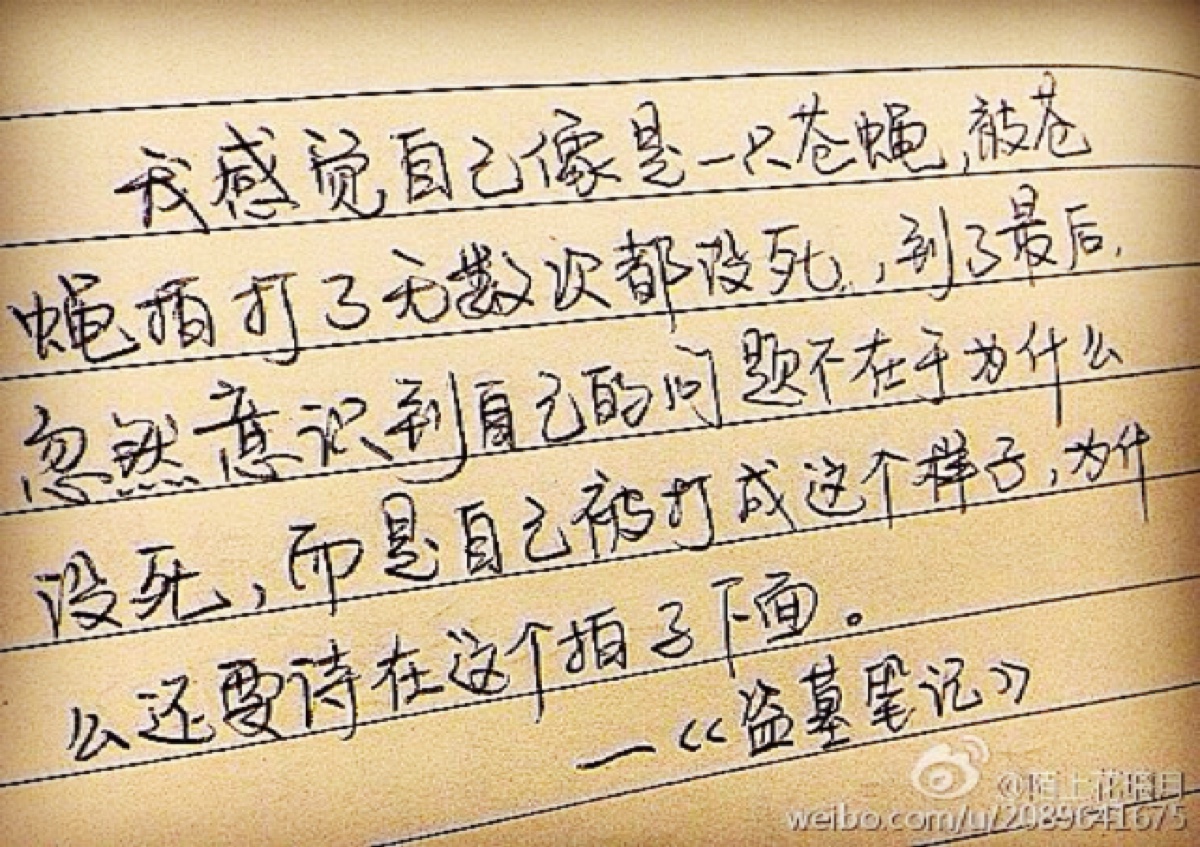 我感觉自己像是一只苍蝇,被苍
蝇拍打了无数次都没死,到了最后,
忽然意识到自己的问题不在于为什么
没死,而是自己被打成这个样子,为什
么还要待在这个拍子下面。
—《盗墓笔记》
@陌上花暗日
weibo.com/u/2089641675